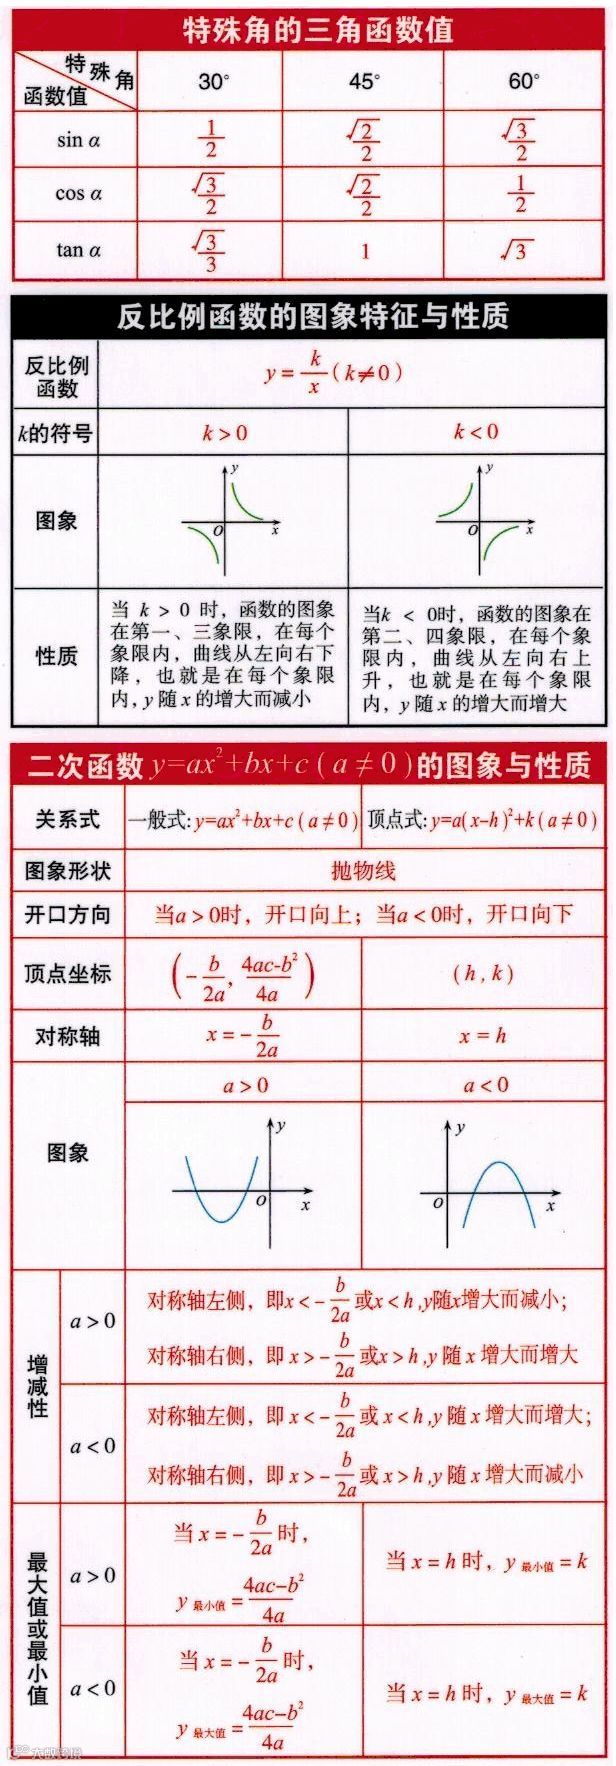 特殊角的三角函数值
特殊角
函数值
30° 45° 60°
sin α 1/2 √2/2 √3/2
cos α √3/2 √2/2 1/2
tan α √3/3 1 √3
反比例函数的图象特征与性质
反比例
函数
y = k/x (k≠0)
k的符号 k>0 k<0
图象
y
O x
y
O x
性质
当 k > 0 时，函数的图象
在第一、三象限，在每个
象限内，曲线从左向右下
降，也就是在每个象限
内，y 随 x 的增大而减小
当k < 0时，函数的图象在
第二、四象限，在每个象
限内，曲线从左向右上
升，也就是在每个象限
内，y 随 x 的增大而增大
二次函数 y=ax²+bx+c ( a ≠ 0 )的图象与性质
关系式 一般式:y=ax²+bx+c ( a≠0 ) 顶点式:y=a(x-h)²+k ( a≠0 )
图象形状 抛物线
开口方向 当a>0时，开口向上；当a<0时，开口向下
顶点坐标 (-b/2a, 4ac-b²/4a) (h, k)
对称轴 x=-b/2a x=h
图象
a>0 a<0
y
O x
y
O x
增减性
a>0
对称轴左侧，即x<-b/2a或x<h,y随x增大而减小；
对称轴右侧，即 x>-b/2a或x>h,y 随 x 增大而增大
a<0
对称轴左侧，即 x<-b/2a或 x<h,y 随 x 增大而增大；
对称轴右侧，即 x>-b/2a或 x>h,y 随 x 增大而减小
最大值或最小值
a>0
当 x=-b/2a时，
y 最小值=4ac-b²/4a
当 x=h 时，y 最小值=k
a<0
当 x=-b/2a时，
y 最大值=4ac-b²/4a
当 x=h 时，y 最大值=k